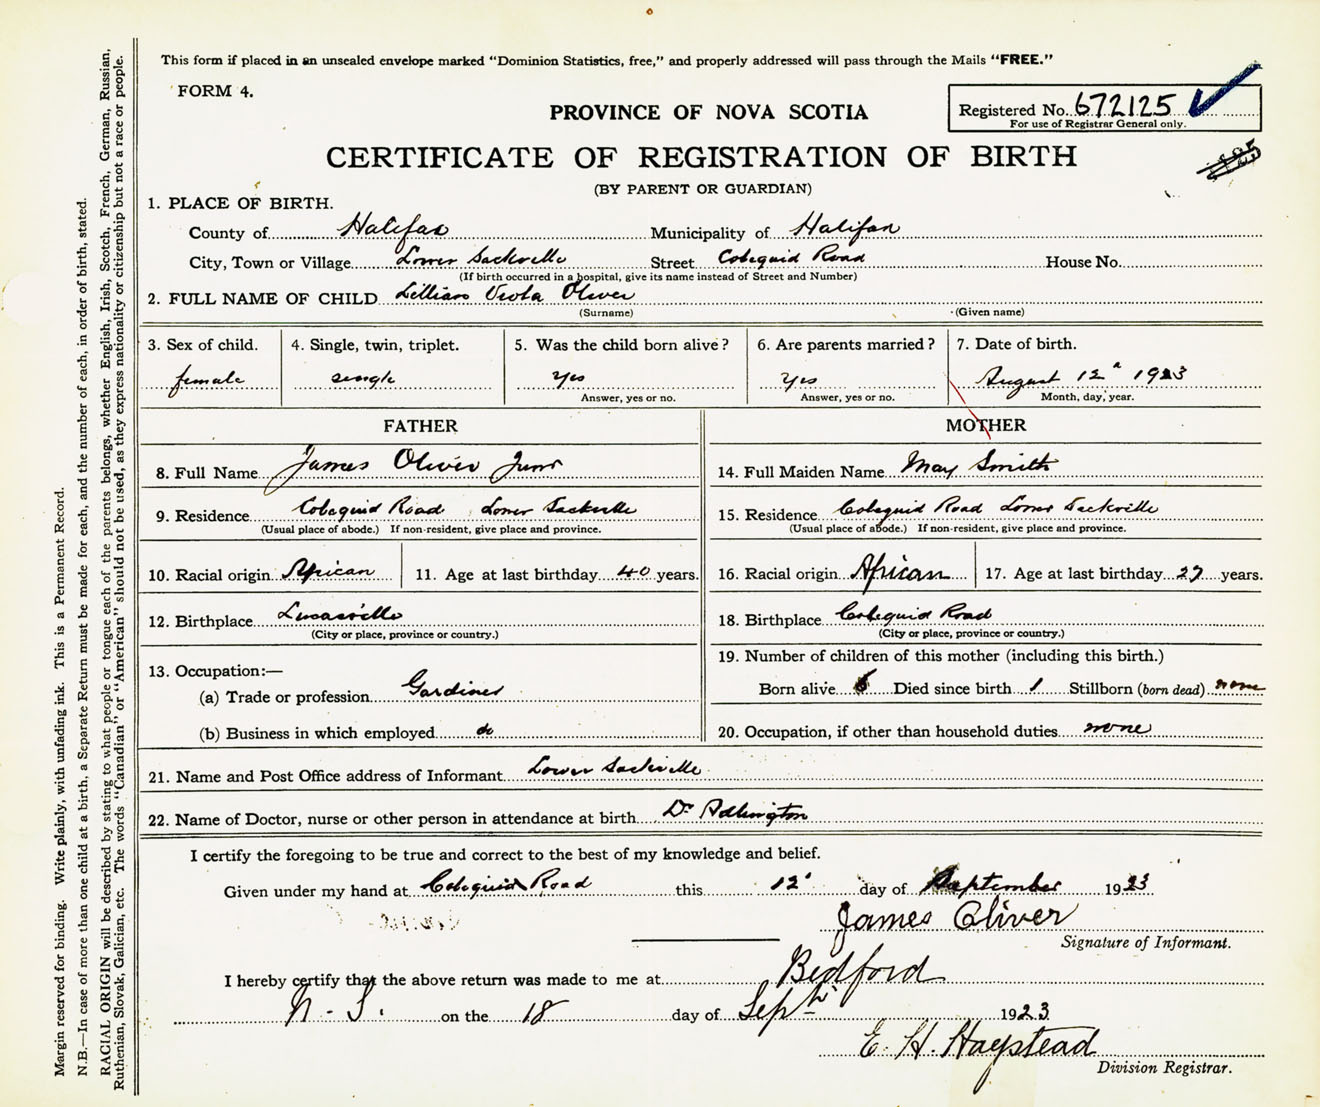 This form if placed in an unsealed envelope marked "Dominion Statistics, free," and properly addressed will pass through the Mails "FREE."
FORM 4.
PROVINCE OF NOVA SCOTIA
Registered No. 672125
For use of Registrar General only.
CERTIFICATE OF REGISTRATION OF BIRTH
(BY PARENT OR GUARDIAN)
1. PLACE OF BIRTH.
County of Halifax Municipality of Halifax
City, Town or Village Lower Sackville Street Cobequid Road House No.
(If birth occurred in a hospital, give its name instead of Street and Number)
2. FULL NAME OF CHILD Lillian Viola Oliver
(Surname) (Given name)
3. Sex of child. 4. Single, twin, triplet. 5. Was the child born alive? 6. Are parents married? 7. Date of birth.
female single yes yes August 12 1923
Answer, yes or no. Answer, yes or no. Month, day, year.
FATHER MOTHER
8. Full Name James Oliver Junr 14. Full Maiden Name May Smith
9. Residence Cobequid Road Lower Sackville 15. Residence Cobequid Road Lower Sackville
(Usual place of abode.) If non-resident, give place and province. (Usual place of abode.) If non-resident, give place and province.
10. Racial origin African 11. Age at last birthday 40 years. 16. Racial origin African 17. Age at last birthday 27 years.
12. Birthplace Lucasville 18. Birthplace Cobequid Road
(City or place, province or country.) (City or place, province or country.)
13. Occupation:— 19. Number of children of this mother (including this birth.)
(a) Trade or profession Gardiner Born alive 6 Died since birth 1 Stillborn (born dead) none
(b) Business in which employed do 20. Occupation, if other than household duties none
21. Name and Post Office address of Informant Lower Sackville
22. Name of Doctor, nurse or other person in attendance at birth Dr Adlington
I certify the foregoing to be true and correct to the best of my knowledge and belief.
Given under my hand at Cobequid Road this 12 day of September 1923
James Oliver
Signature of Informant.
I hereby certify that the above return was made to me at Bedford
N. S. on the 18 day of Sept 1923
E. H. Haystead
Division Registrar.
Margin reserved for binding. Write plainly, with unfading ink. This is a Permanent Record.
N.B.—In case of more than one child at a birth, a Separate Return must be made for each, and the number of each, in order of birth, stated.
RACIAL ORIGIN will be described by stating to what people or tongue each of the parents belongs, whether English, Irish, Scotch, French, German, Russian,
Ruthenian, Slovak, Galician, etc. The words "Canadian" or "American" should not be used, as they express nationality or citizenship but not a race or people.